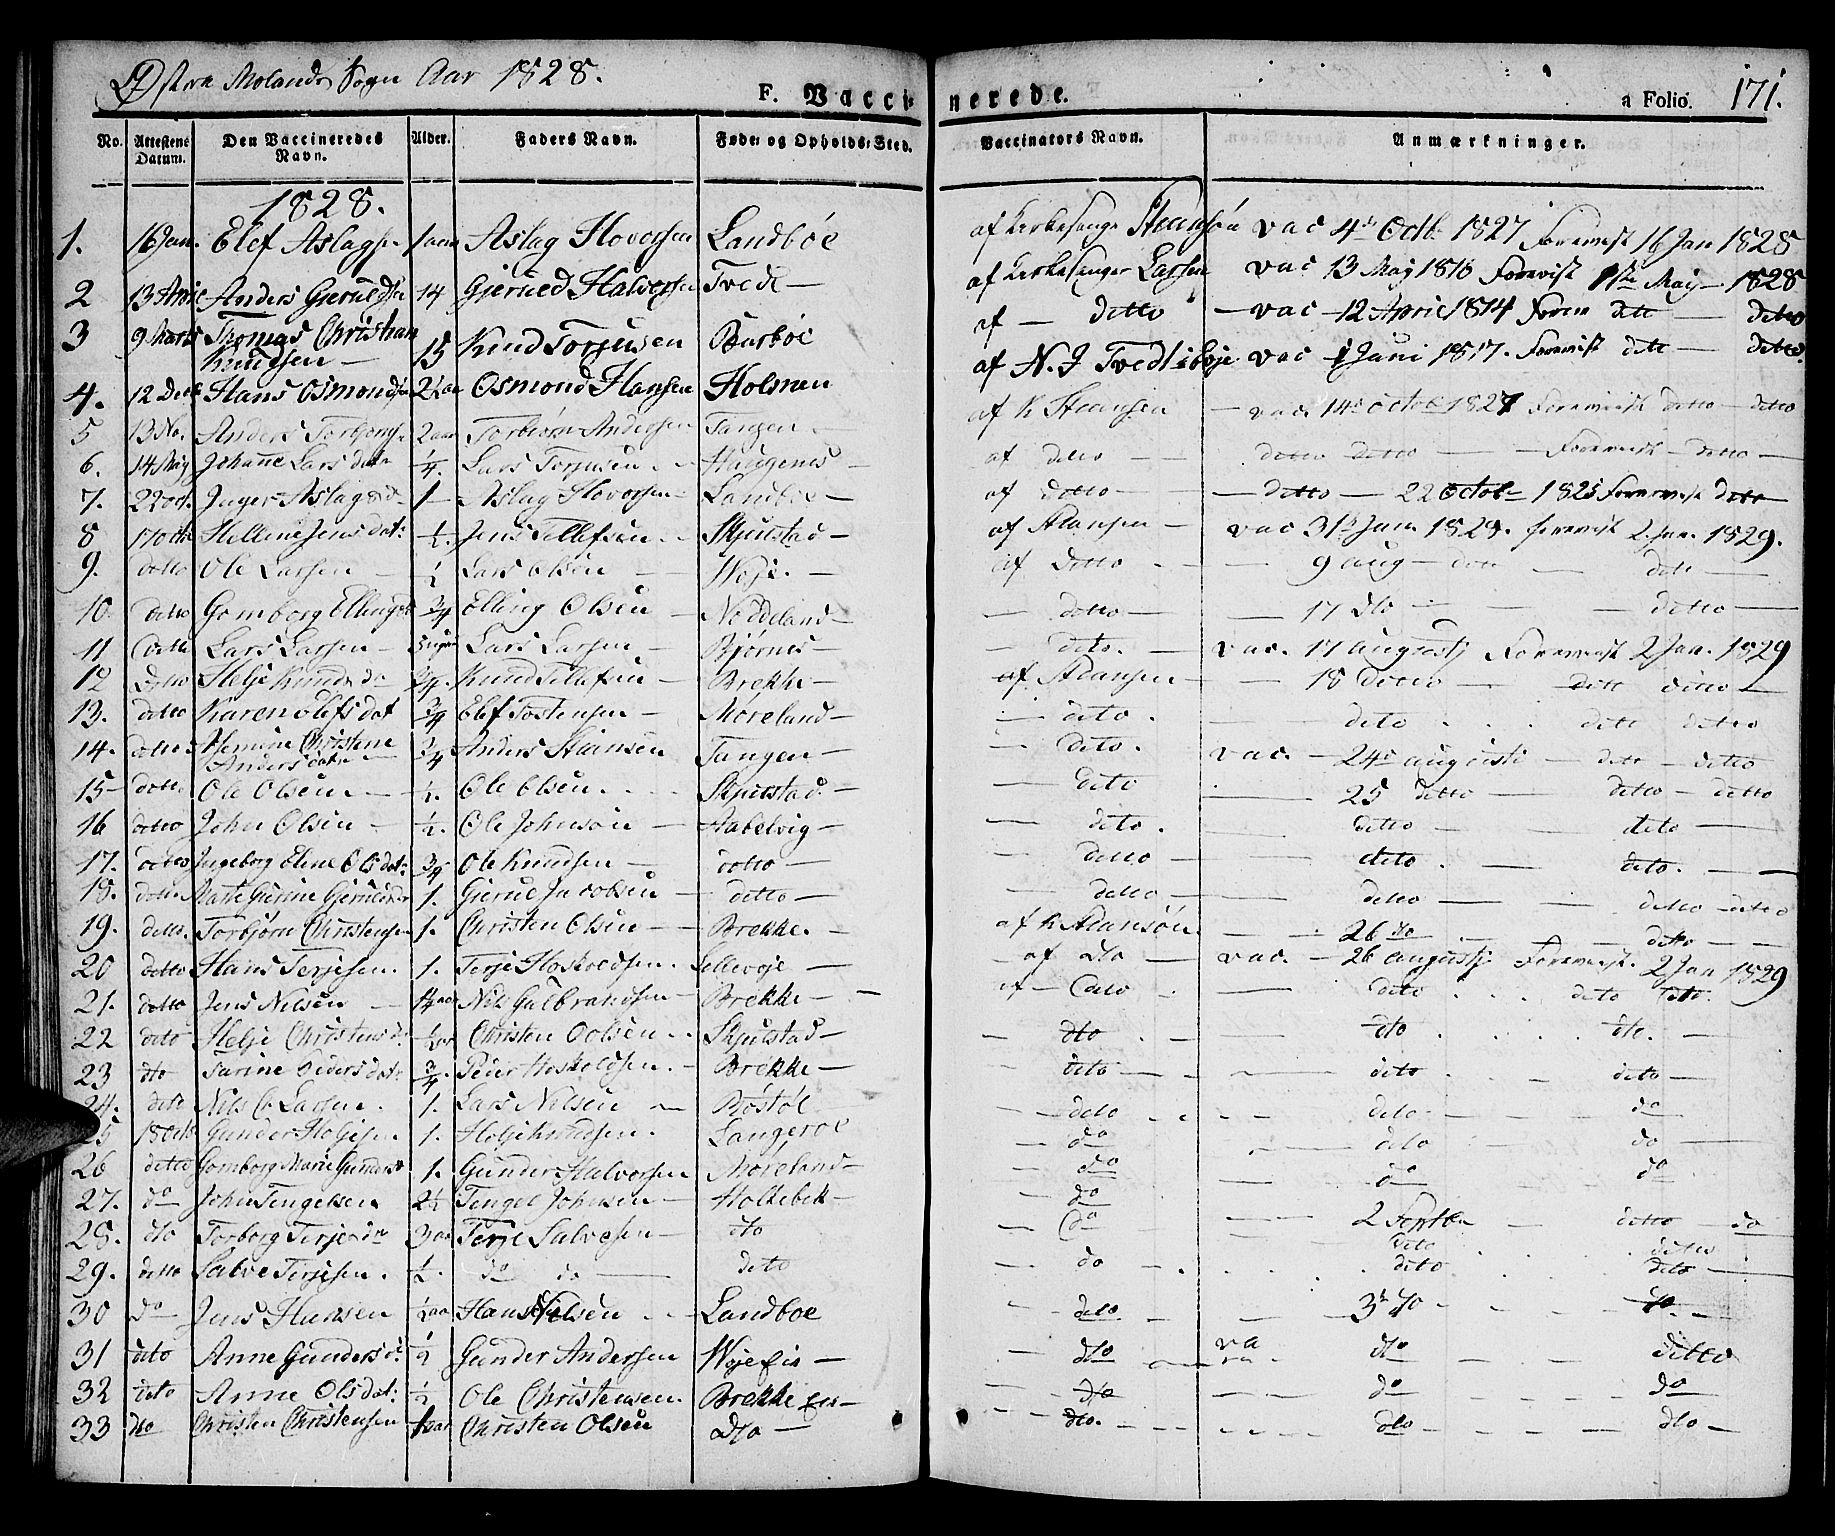 Østre Molands Sogn Aar 1828.
F. Vaccinerede.
a Folio. 171.
No. Attestens Datum. Den Vaccineredes Navn. Alder. Faders Navn. Føde- og Opholds-Sted. Vaccinators Navn. Anmærkninger.
1828.
1. 16 Jan. Elef Aslagsen 1 aar Aslag Hovorsen Landbøe af Kirkesanger vac 4de Octb. 1827 Forevist 16 Jan 1828
2 13 April Anders Gjeruldsen 14 Gjerued Halvorsen Tvede — af Kirkesanger Larsen vac 13 Maj 1816 Forevist 1ste Maj — 1828
3 9 Marts Thomas Christian Knudsen — 15 Knud Torjusen Burbøe af — ditto — vac — 12 April 1814 Forev dito — ditto
4. 12 Hans Osmondsen 2½ aar Osmond Hansen Holmen af N. J. Tvedt vac 1 Juni 1817. Forevist dito — ditto
5 13 No. Anders Torbjørns. 2 aar Torbiørn Andersen Tangen — af K — vac. 14de Octob 1827 Forevist ditto — ditto
6. 14 Maj Johanne Larsdatr ¼ Lars Torjusen — Haugenes — af ditto — ditto ditto — Forevist — ditto —
7. 22 oct. Inger Aslagsd 1 — Aslag Hovorsen — Landbøe — af ditto — — ditto — 22 Octob — 182 Forevist ditto
8 17 octb Hellene Jensdatr. ½. Jens Tellefsen — Skjulstad — af — vac 31te Jan. 1829. forevist 2 Jan. 1829.
9. ditto Ole Larsen — ½ Lars Olsen — Woje — af ditto — 9 aug — dito — dito —
10. ditto Gomborg Ellingsd ¾ Elling Olsen — Noddeland — — ditto — — 17 dto — — ditto —
11 ditto Lars Larsen — Lars Larsen — Bjørnes — — dito. — vac. 17 augustj Forevist 2 Jan. 1829
12 Ditto Helje Knudsda ¾. Knud Tellefsen — Brekke — af — — 18 ditto — ditt ditto —
13. ditto Karen Elefsdat ¾ Elef Tostensen — Moreland — — dito. — dito . . ditt ditto
14. ditto Hemine Christene Andersdatr — ¾ Anders Hansen Tangen — — dito. vac. — 24de augusti — dito — ditto
15 — ditto Ole Olsen. — ½. Ole Olsen. Skjulstad — — dito — 25 ditto — ditto — ditto
16 ditto John Olsen — ½. Ole Johnsen — Habelvig — — dito. — ditto — dito —
17. ditto Ingeborg Eline Olsdat. ¾ Ole Knudsen — ditto — — ditto — — dito. — dito. —
18. ditto Marte Gurine 1. Gjerul Jacobsen — ditto — — ditto — ditto — ditto — ditto
19. ditto. Torbjørn Christensen 1. Christen Olsen — Brekke. — af K — — 26 dto — ditto — —
20 ditto Hans Terjesen. 1. Terje Hoskoldsen. Sellevoje — — af dto — vac. — 26 augustj Forevist. 2 Jan 1829
21. ditto Jens Nilsen — Nils Gulbrandsen — Brekke — af — dito — dito . . . dito dito.
22 dito Helje Christensd. Christen Oolsen — Skjulstad — — dto — — dto . . dto. —
23 dto Tarine Pedersdat. ¾. Peder Hoskoldsen. — Brekke — — dito — — dito . — dito —
24. dito Nils C. Larsen. 1. Lars Nilsen — Røstøl — dito . . dito — do
25 18 Octb Gunder Holjesen 1. Holje Knudsen. Langeroe — do — dito do —
26 ditto Gomborg Marie Gundersd 1. Gunder Halvorsen Moreland — — do — do — do
27. do John Tengelsen 2½ Tengel Johnsen — Holtebek — — do
28. dto Torborg Terjesdr 3 aar Terje Salvesen — dto — do — 2 Septbr — ditto — do
dito ditto
29. ditto Salve Terjesen. ½. do do — dito — do — . . dito . . dito —
30 do — Jens Hansen ½ aar Hans Nilsen — Landboe — dito — 3de do — do
31 dito Anne Gundersd. ½ Gunder Andersen Woje Eie — — dto — va dto — ditto
32 dito Anne Olsdat. ½ Ole Christensen. Brekke Eie — — do — do — do
33 dto Christen Christensen 1 aar Christen Olsen Dto — — dto. — dto — dto —